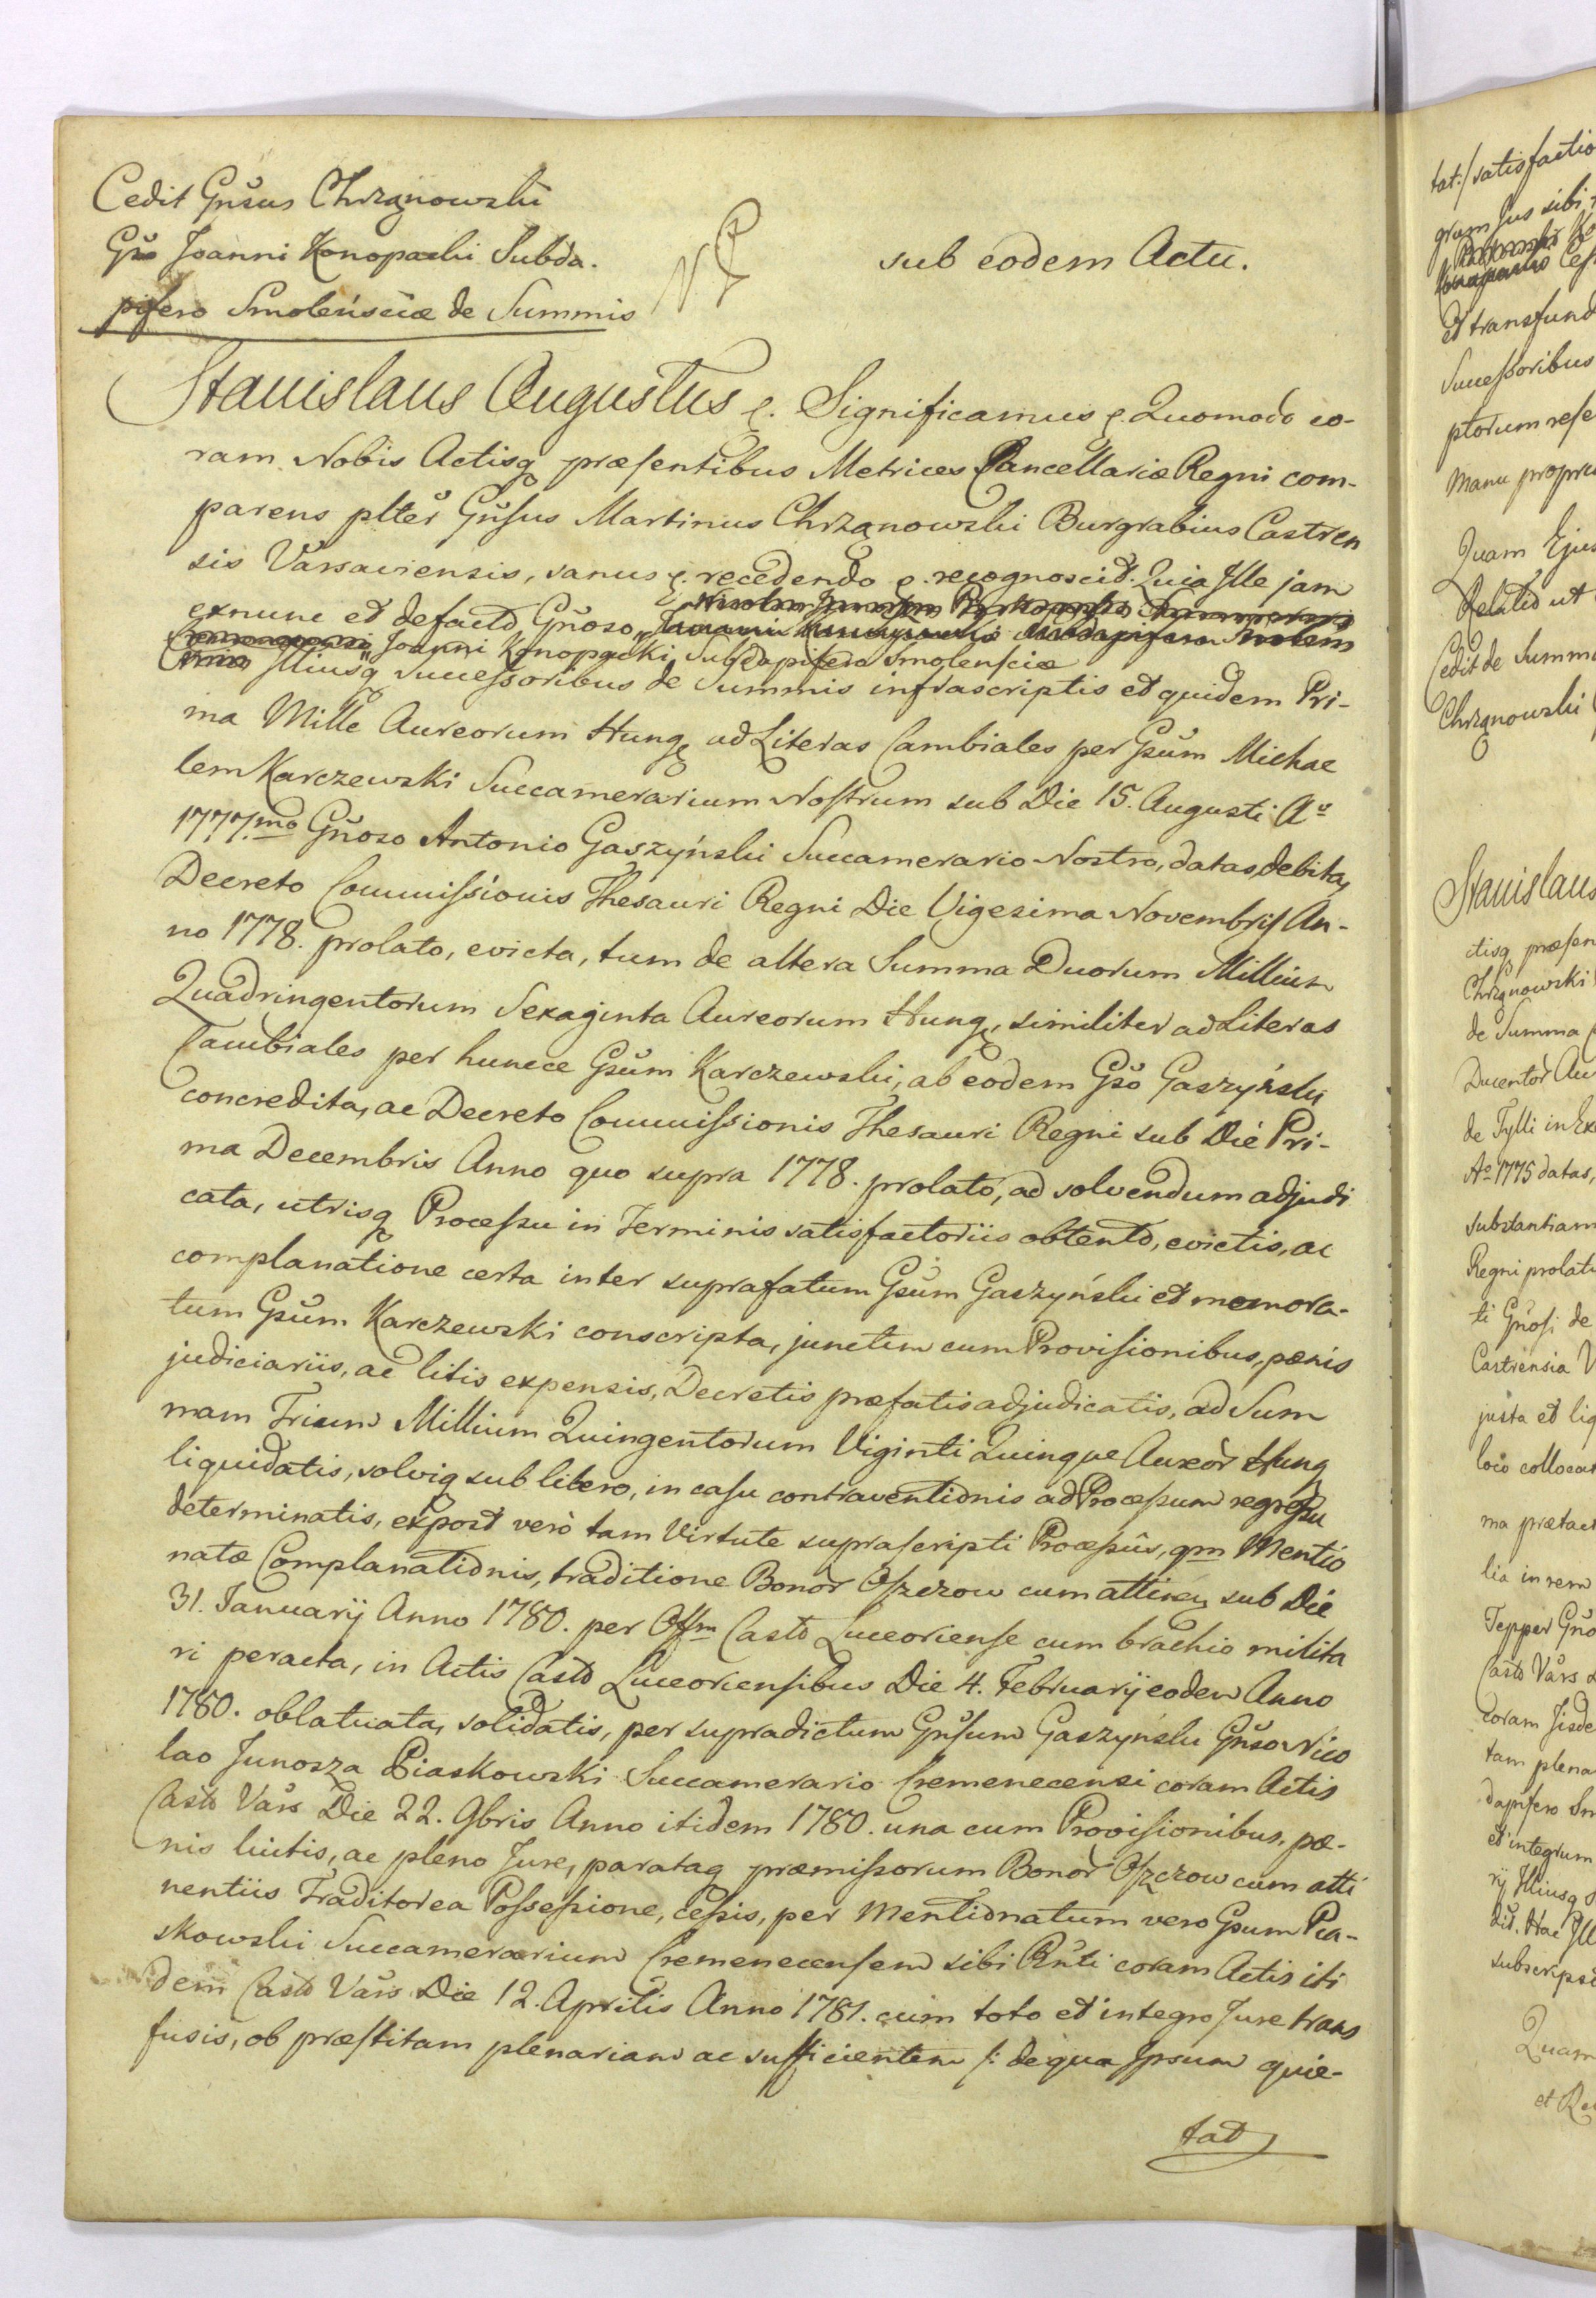 Cedit Gnsus Chrzanowski
Gso Joanni Konopacki Subda.
pifero Smolensciæ de Summis
sub eodem Actu.
Stanislaus Augustus &. Significamus &. Quomodo co-
ram Nobis Actisq præsentibus Metrices Cancellariæ Regni com-
parens plter Gnsus Martinus Chrzanowski Burgrabius Castren
sis Varsaviensis, sanus &. recedendo &. recognoscit. Quia Ille jam
exnunc et defacto Gnoso
Joanni Konopacki Subdapifero Smolensciæ
Illiusq Successoribus de Summis infrascriptis et quidem Pri-
ma Mille Aureorum Hung ad Literas Cambiales per Gsum Michae
lem Karczewski Succamerarium Nostrum sub Die 15. Augusti Ao
1777.mo Gnoso Antonio Gaszyński Succamerario Nostro, datas, debita,
Decreto Commissionis Thesauri Regni Die Vigesima Novembris An-
no 1778. prolato, evicta, tum de altera Summa Duorum Millium
Quadringentorum Sexaginta Aureorum Hung, similiter ad Literas
Cambiales per hunce Gsum Karczewski, ab eodem Gso Gaszyński
concredita, ac Decreto Commissionis Thesauri Regni sub Die Pri-
ma Decembris Anno quo supra 1778. prolato, ad solvendum adjudi
cata, utrisq Processu in Terminis satisfactoriis obtento, evictis, ac
complanatione certa inter suprafatum Gsum Gaszyński et memora-
tum Gsum Karczewski conscripta, junctim cum Provisionibus, pænis
judiciariis, ac litis expensis, Decretis præfatis adjudicatis, ad Sum
mam Trium Millium Quingentorum Viginti Quinque Aureor Hung
liquidatis, solviq sub libero, in casu contraventionis ad Processum regressu
determinatis, expost verò tam Virtute suprascripti Processûs, qm Mentio
natæ Complanationis, traditione Bonor Oszczow cum attinen sub Die
31. Januarij Anno 1780. per Offm Castr Luceoriense cum brachio milita
ri peracta, in Actis Castr Luceoriensibus Die 4. Februarij eodem Anno
1780. oblatuata, solidatis, per supradictum Gnsum Gaszyński Gnso Nico
lao Junosza Piaskowski Succamerario Cremenecensi coram Actis
Castr Vars Die 22. 9bris Anno itidem 1780. una cum Provisionibus, pæ-
nis luitis, ac pleno Jure, parataq præmissorum Bonor Oszczow cum atti
nentiis Traditorea Possessione, cessis, per Mentionatum vero Gsum Pia-
skowski Succamerarium Cremenecensem sibi Rnti coram Actis iti
dem Castr Vars Die 12. Aprilis Anno 1781. cum toto et integro Jure trans
fusis, ob præstitam plenariam ac sufficientem /: de qua Ipsum quie-
tat
tat:/ satisfactio
gram Jus sibi
et transfund
Successoribus
ptorum rese
manu propria
Quam Ejus
Relatio ut
Cedit de Summa
Chrzanowski
Stanislaus
ctisq præsen
Chrzanowski
de Summa
Ducentor Au
de Tylli in Ex
Ao 1775 datas,
substantiam
Regni prolat
ti Gnosi de
Castrensia V
justa et liq
loco colloca
ma prætact
lia in rem
Tepper Gno
Castr Vars
coram Iisde
tam plena
dapifero Sm
et integrum
rij Illiusq S
dit. Hac Ill
subscripsit
Quam
et Re